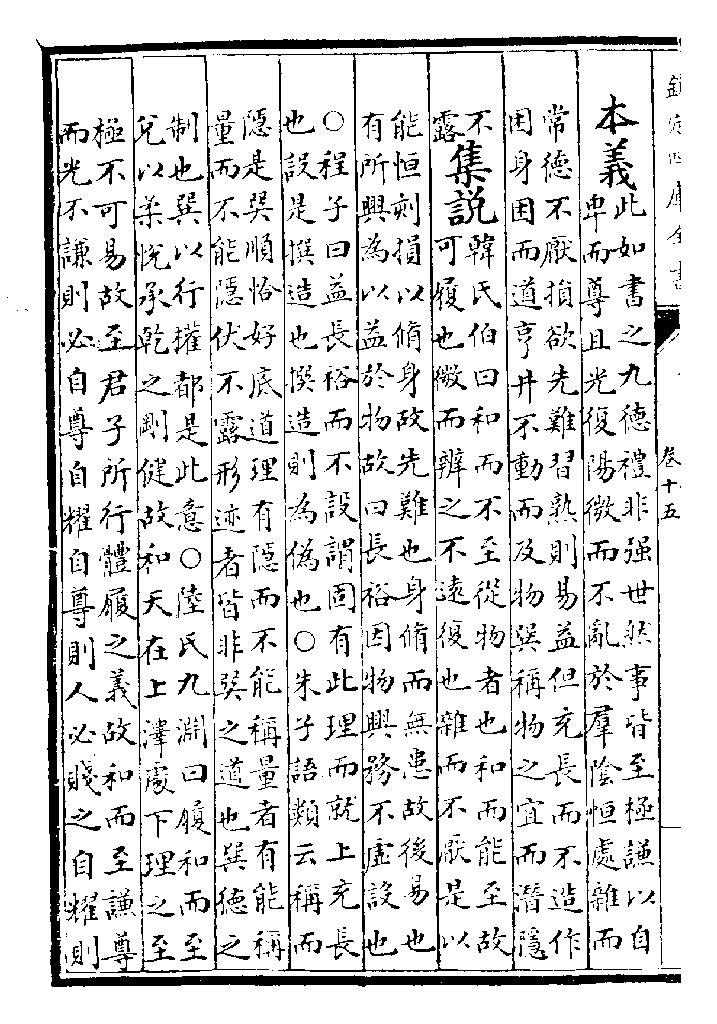 欽定四庫全書
卷十五
本義
此如書之九德禮非强世然事皆至極謙以自
卑而尊且光復陽微而不亂於羣陰恒處雜而
常德不厭損欲先難習熟則易益但充長而不造作
困身困而道亨井不動而及物巽稱物之宜而潛隱
不
露
集說
韓氏伯曰和而不至從物者也和而能至故
可履也微而辨之不遠復也雜而不厭是以
能恒刻損以脩身故先難也身脩而無患故後易也
有所興為以益於物故曰長裕因物興務不虛設也
○程子曰益長裕而不設謂固有此理而就上充長
也設是撰造也撰造則為偽也○朱子語類云稱而
隱是巽順恰好底道理有隱而不能稱量者有能稱
量而不能隱伏不露形迹者皆非巽之道也巽德之
制也巽以行權都是此意○陸氏九淵曰履和而至
兌以柔悅承乾之剛健故和天在上澤處下理之至
極不可易故至君子所行體履之義故和而至謙尊
而光不謙則必自尊自耀自尊則人必賤之自耀則